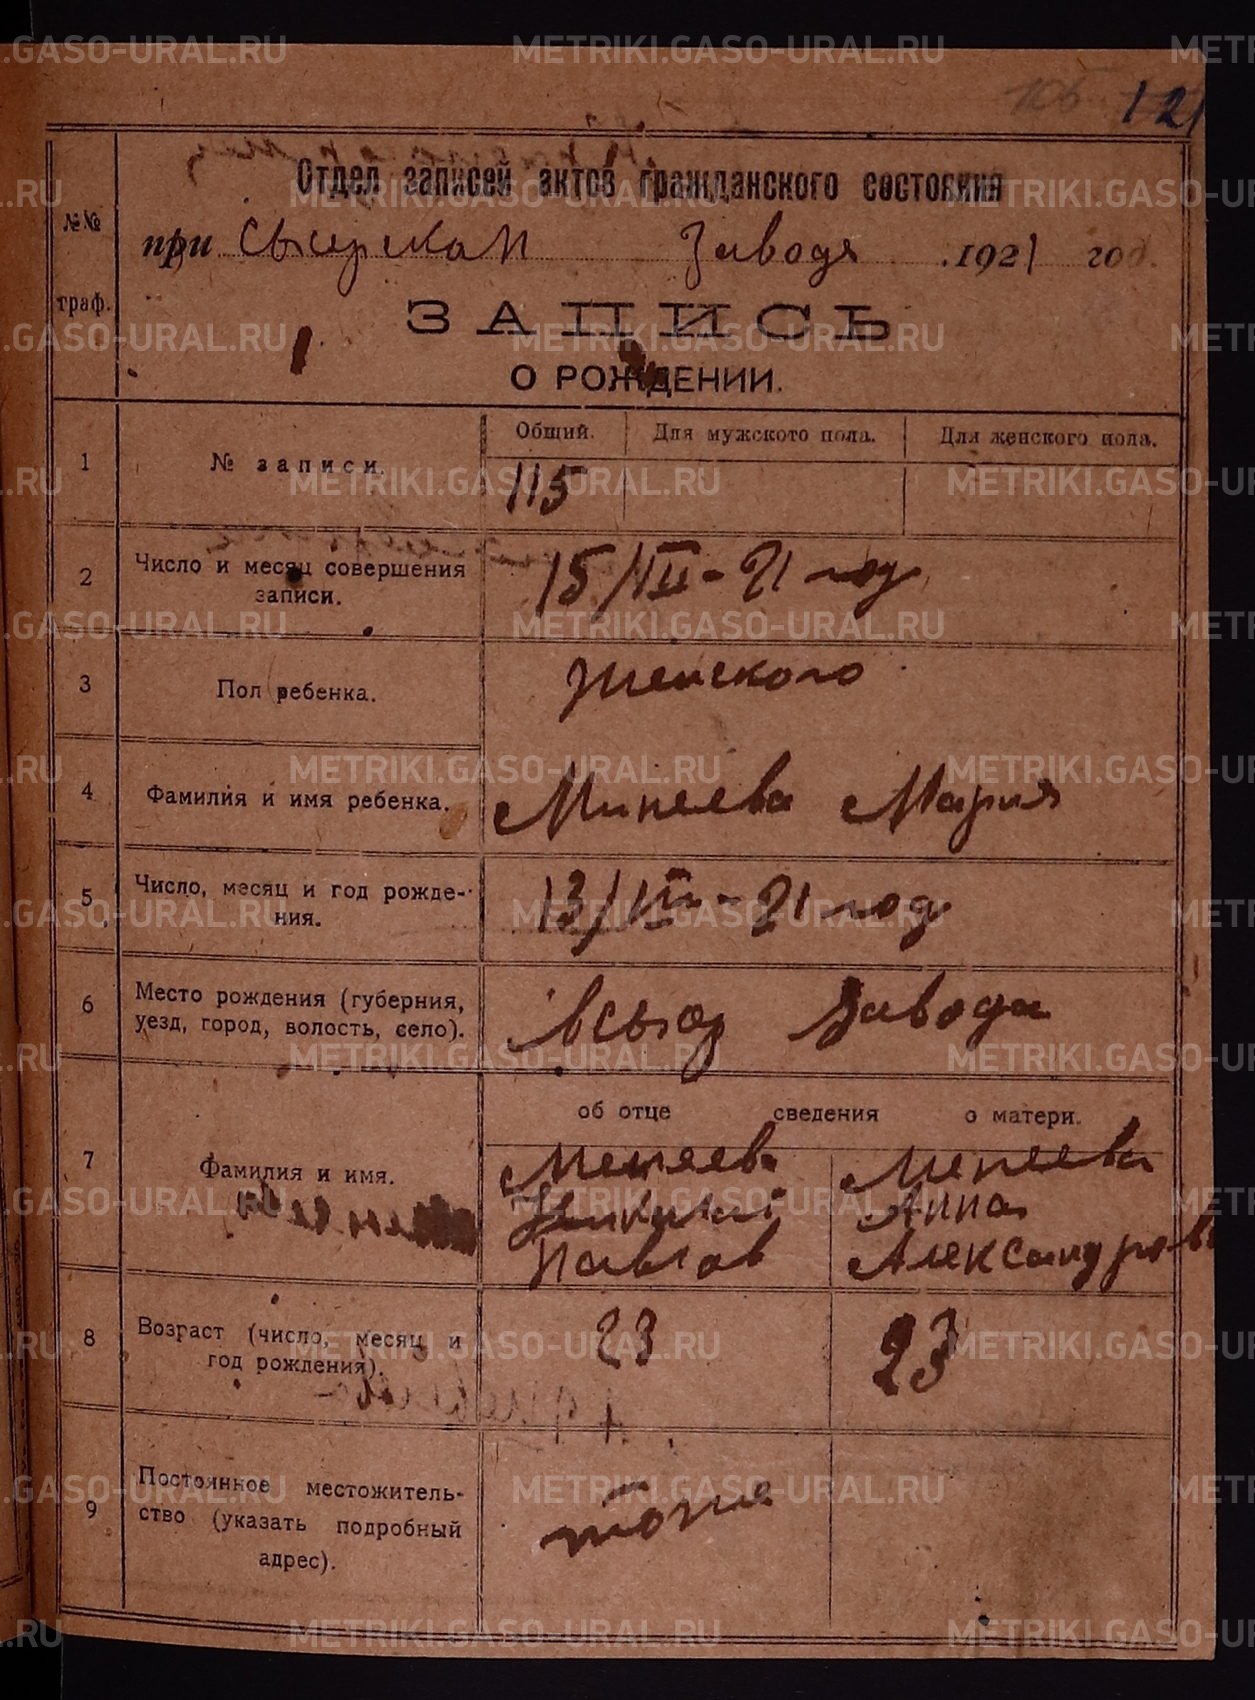 121
Отдел записей актов гражданского состояния
№№ граф.
при Сысерском Заводе 1921 год.
ЗАПИСЬ
О РОЖДЕНИИ.
Общий. Для мужского пола. Для женского пола.
1 № записи. 115
2 Число и месяц совершения
записи.
15/III-21 год
3 Пол ребенка. женского
4 Фамилия и имя ребенка. Минеева Мария
5 Число, месяц и год рожде-
ния.
13/III-21 год
6 Место рождения (губерния,
уезд, город, волость, село).
Завода
об отце сведения о матери.
7 Фамилия и имя.
Менеев
Павлов
Менеева
Анна
Александровн
8 Возраст (число, месяц и
год рождения).
23 23
9 Постоянное местожитель-
ство (указать подробный
адрес).
тоже
METRIKI.GASO-URAL.RU